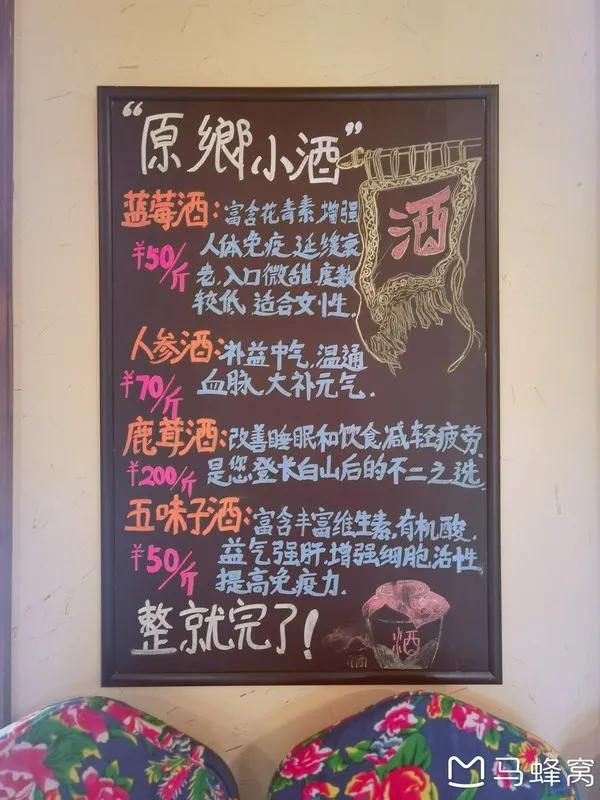 “原鄉小酒”
酒
蓝莓酒:富含花青素,增强
¥50/斤
人体免疫,延缓衰
老,入口微甜,度数
较低,适合女性.
人参酒:补益中气,温通
¥70/斤
血脉,大补元气.
鹿茸酒:改善睡眠和饮食,减轻疲劳
¥200/斤
是您登长白山后的不二之选
五味子酒:富含丰富维生素,有机酸,
¥50/斤
益气强肝,增强细胞活性
提高免疫力.
整就完了!
酒
马蜂窝